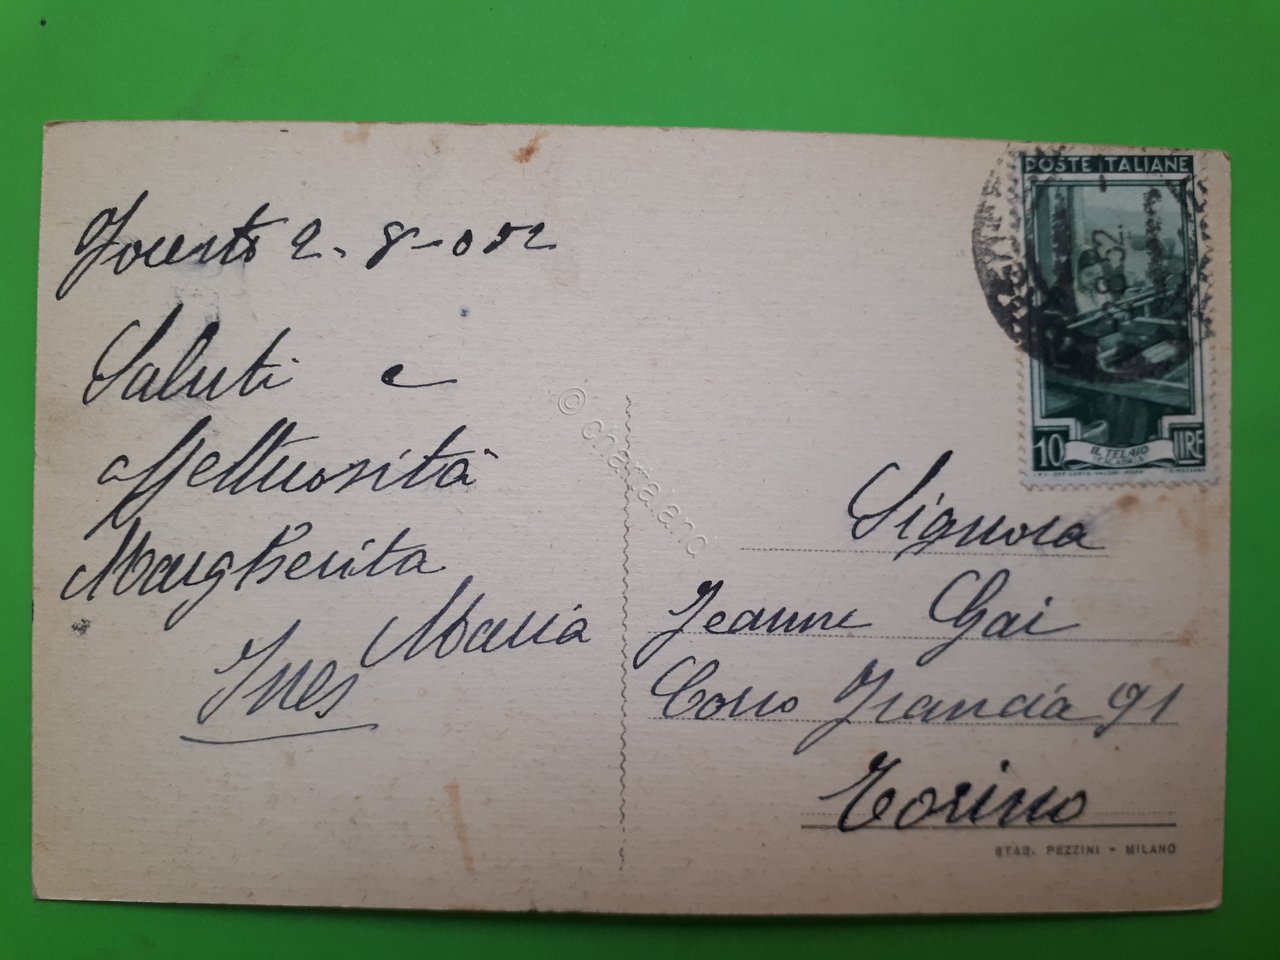 2. 8-052
Saluti e
affettuosità
Margherita
Maria
Ines
POSTE ITALIANE
8.52.
10 LIRE
IL TELAIO
CALABRIA
Signora
Jeanne Gai
Corso Francia 91
Torino
STAB. PEZZINI - MILANO
© chartaland